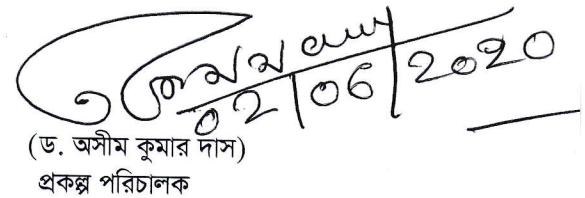 02/06/2020
(ড. অসীম কুমার দাস)
প্রকল্প পরিচালক